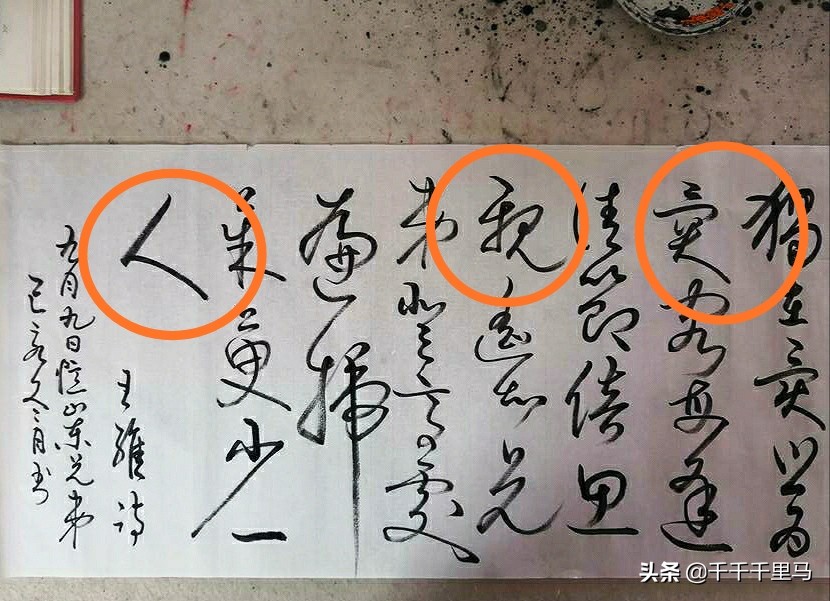 獨在異鄉為
異客每逢
佳節倍思
親遥知兄
弟登高處
遍插
茱萸少一
人
王維詩
九月九日憶山東兄弟
己亥月书
头条 @千千千里马